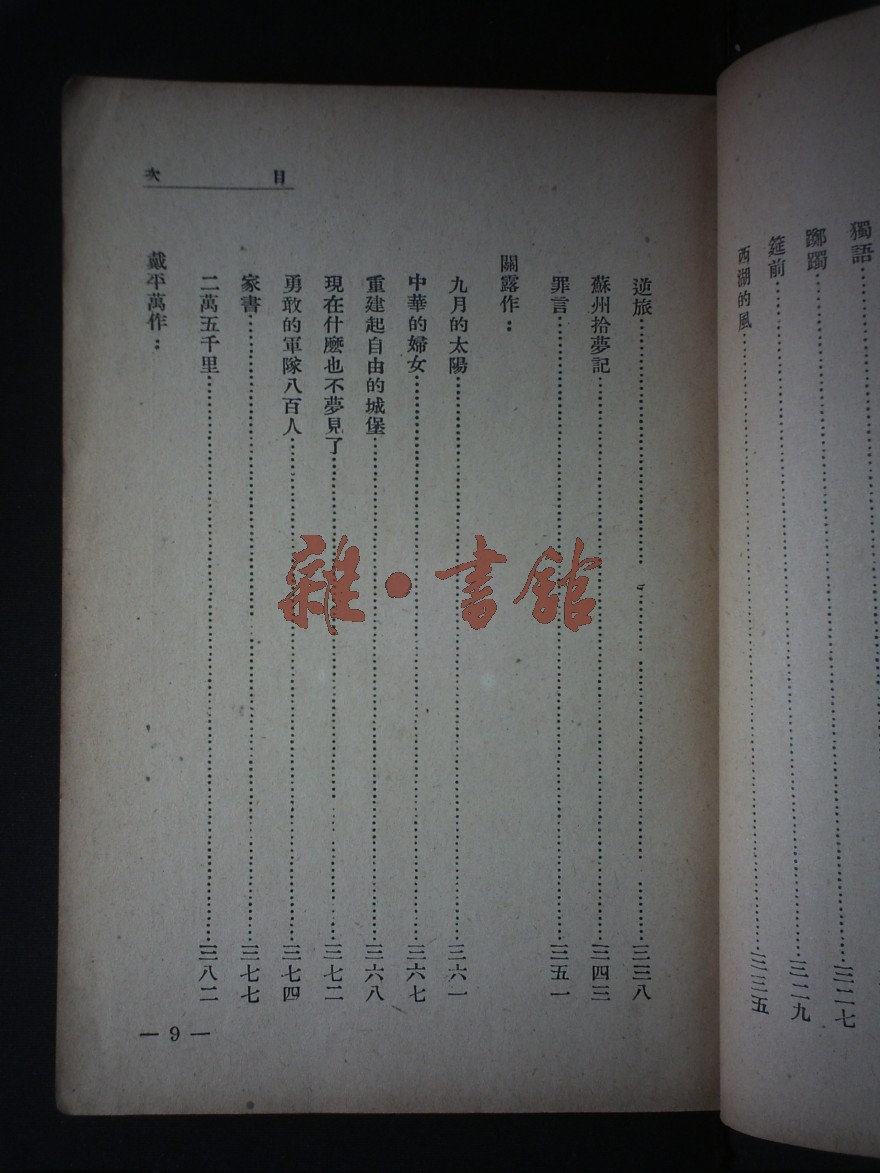 獨語……三二七
躑躅……三二九
筵前……三三五
西湖的風
目次
逆旅……三三八
蘇州拾夢記……三四三
罪言……三五一
關露作：
九月的太陽……三六一
中華的婦女……三六七
重建起自由的城堡……三六八
現在什麽也不夢見了……三七二
勇敢的軍隊八百人……三七四
家書……三七七
二萬五千里……三八二
戴平萬作：
— 9 —
雜·書館